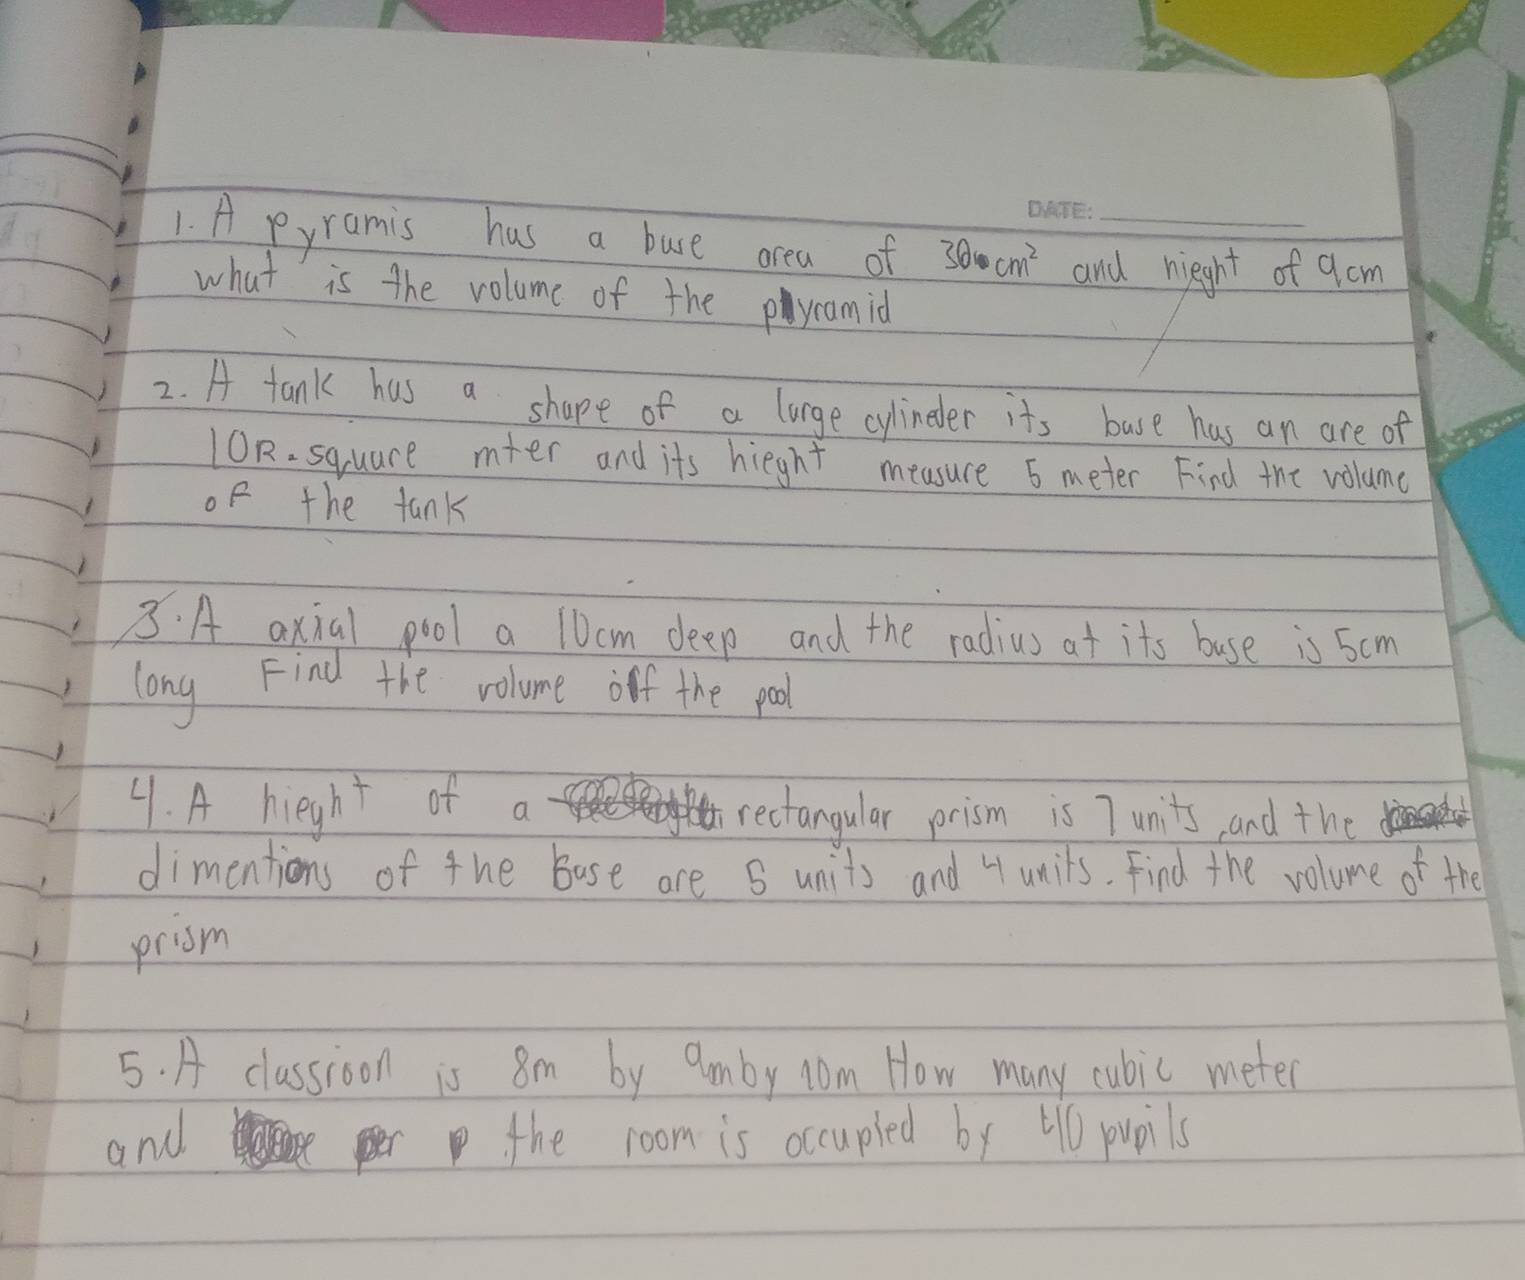 DATE:
1. A pyramis has a base area of 30 cm² and hieght of 9cm
what is the volume of the pyramid
2. A tank has a shape of a large cylinder its base has an are of
10R. square mter and its hieght measure 5 meter Find the volume
of the tank
3. A axial pool a 10cm deep and the radius at its base is 5cm
long Find the volume off the pool
4. A hieght of a rectangular prism is 7 units, and the
dimentions of the base are 5 units and 4 units. Find the volume of the
prism
5. A classroon is 8m by 9mby 10m How many cubic meter
and per the room is occupied by 40 pupils